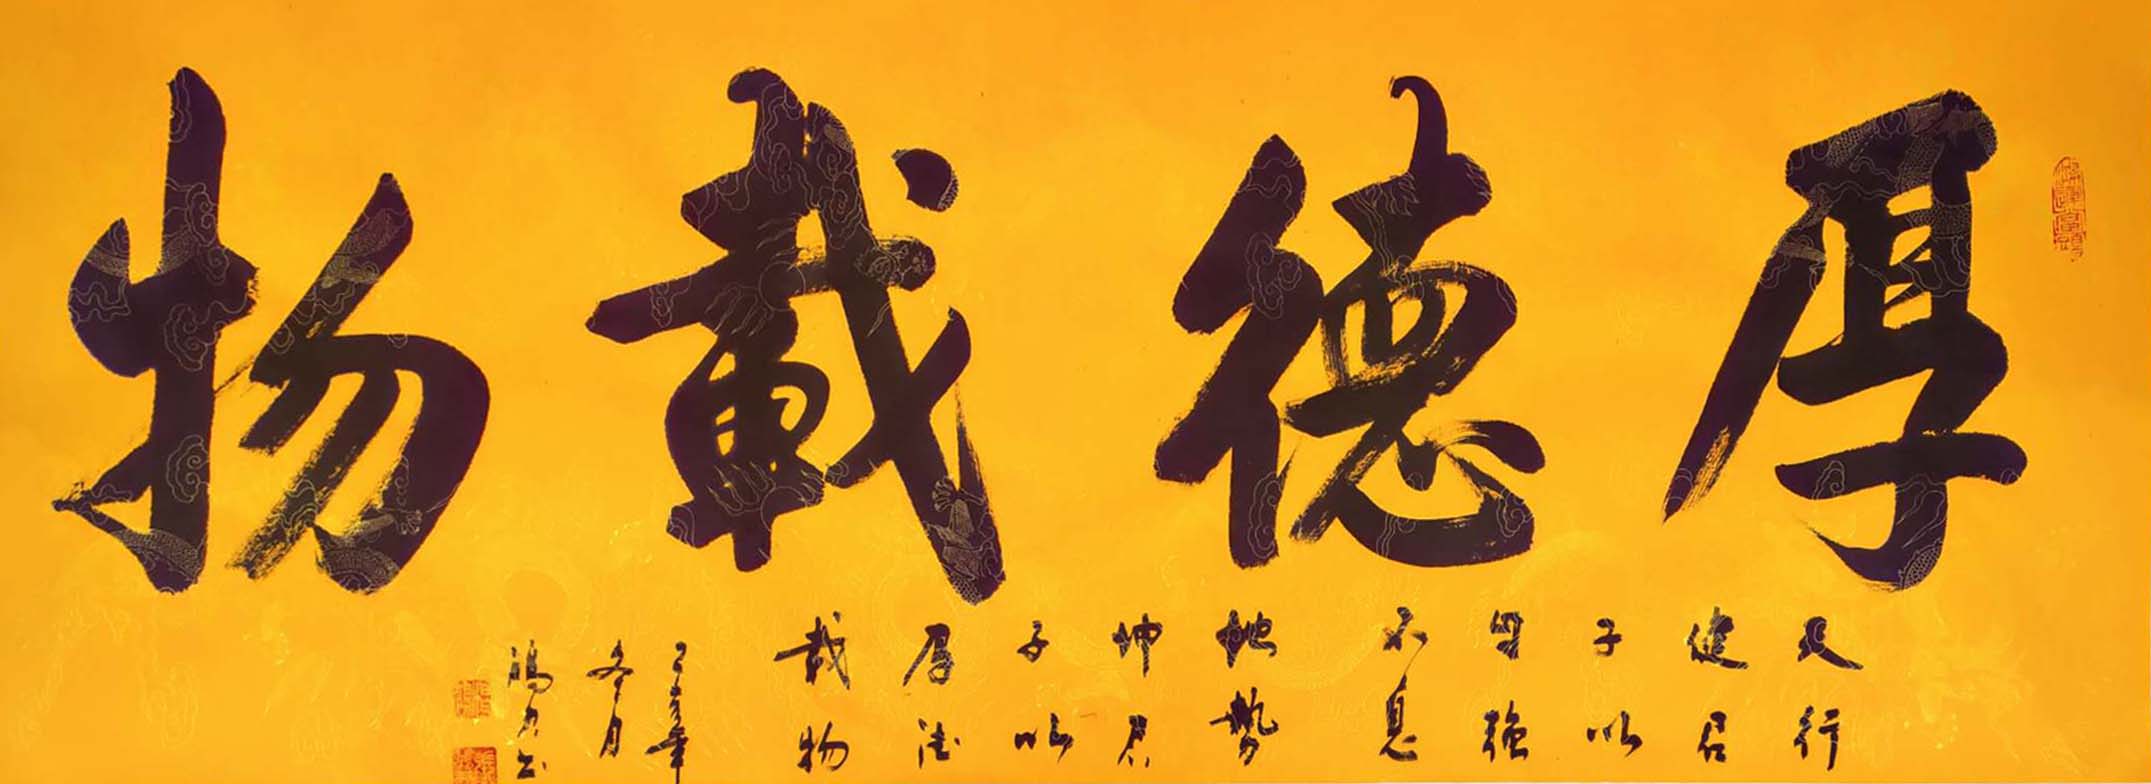 厚德載物
天行
健君
子以
自強
不息
地勢
坤君
子以
厚德
載物
己亥年
冬月
书